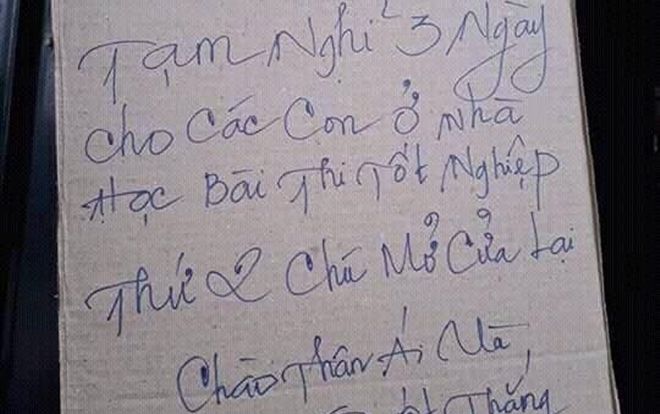 Tạm Nghỉ 3 Ngày
cho Các Con Ở Nhà
Học Bài Thi Tốt Nghiệp
Thứ 2 Chú Mở Cửa Lại
Chào Thân Ái Và,
Thắng